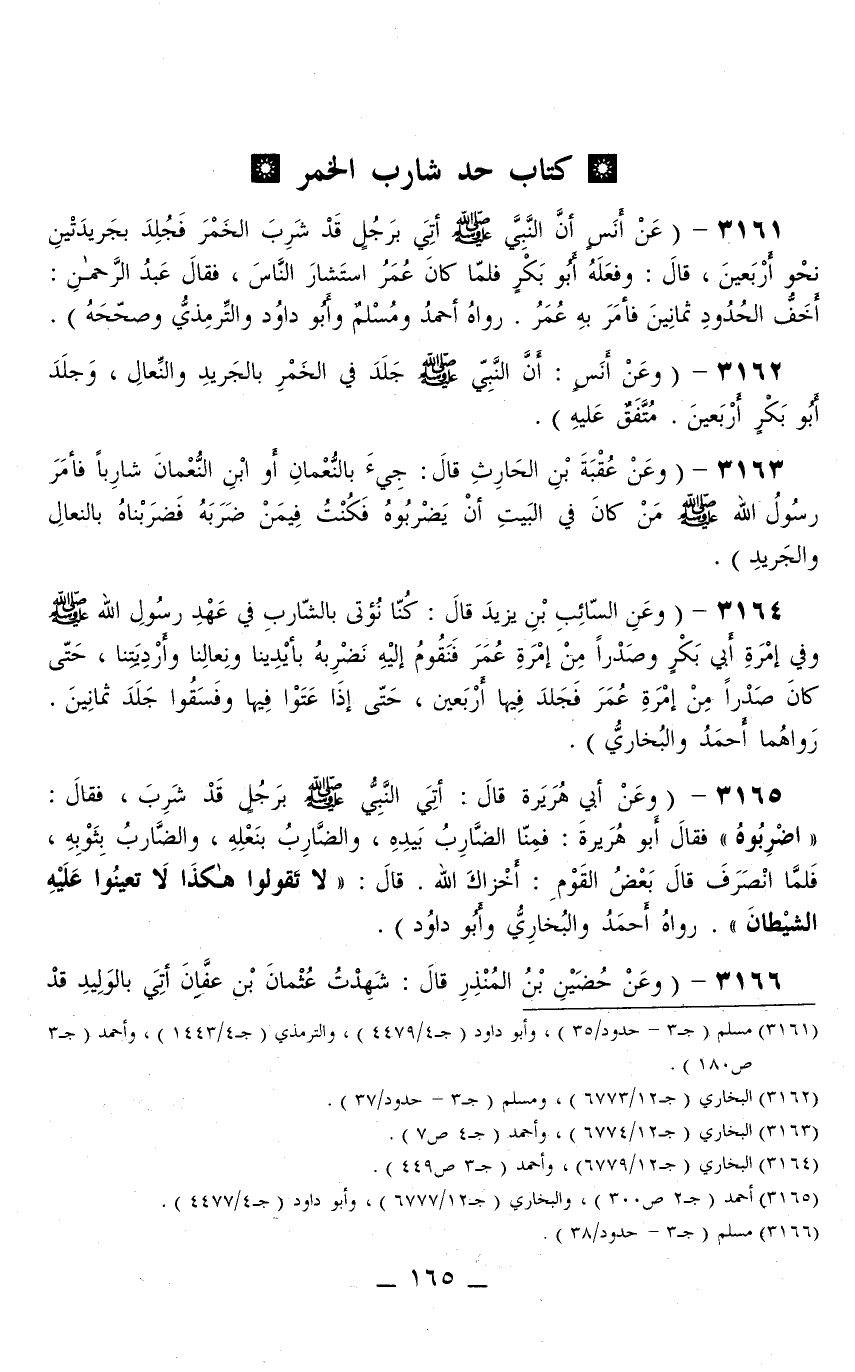 كتاب حد شارب الخمر
٣١٦١ - ( عَنْ أَنَسٍ أنَّ النَّبِيَّ ﷺ أُتِيَ بَرَجُلٍ قَدْ شَرِبَ الخَمْرَ فَجُلِدَ بجَريدَتْينِ
نحْو أَرْبَعينَ ، قالَ : وفعَلَهُ أَبُو بَكْرٍ فلمّا كانَ عُمَرُ استَشارَ النَّاسَ ، فقالَ عَبدُ الرَّحمـٰنِ :
أَخَفُّ الحُدُودِ ثمانِينَ فأمَرَ بهِ عُمَرُ . رواهُ أحمدُ ومُسْلمٌ وأَبُو داوُد والتِّرمِذيُّ وصحّحَهُ ) .
٣١٦٢ - ( وعَنْ أَنَسٍ : أَنَّ النَّبِيّ ﷺ جَلَدَ في الخَمْرِ بالجَريدِ والنِّعالِ ، وَجلَدَ
أَبُو بَكْرٍ أَرْبَعينَ . مُتَّفَقٌ عَليهِ ) .
٣١٦٣ - ( وعَنْ عُقْبَةَ بْنِ الحَارِثِ قالَ : جِيءَ بالنُّعْمانِ أَو ابْنِ النُّعْمانَ شارِباً فأمَرَ
رسُولُ الله ﷺ مَنْ كانَ في البَيتِ أنْ يَضْرِبُوهُ فَكُنْتُ فِيمَنْ ضَرَبَهُ فَضرَبْناهُ بالنعالِ
والجَريدِ ) .
٣١٦٤ - ( وعَنِ السّائِبِ بْنِ يزيدَ قالَ : كُنّا نُؤتى بالشّاربِ في عَهْدِ رسُولِ الله ﷺ
وفي إمْرَةِ أَبي بَكْرٍ وصَدْراً مِنْ إمْرَةِ عُمَرَ فَنَقُومُ إليْهِ نَضْرِبهُ بأيْدِينا ونِعالِنا وأَرْدِيَتِنا ، حَتّى
كانَ صَدْراً مِنْ إمْرَةِ عُمَرَ فَجَلدَ فِيها أَرْبَعين ، حَتّى إذَا عَتَوْا فِيها وفَسَقُوا جَلَدَ ثمانِينَ .
رَواهُما أَحمَدُ والبُخاريُّ ) .
٣١٦٥ - ( وعَنْ أبي هُرَيَرة قالَ : أُتِيَ النَّبيُّ ﷺ بَرَجُلٍ قَدْ شَرِبَ ، فقالَ :
« اضْرِبُوهُ » فقالَ أَبو هُرَيرةَ : فمِنّا الضَّارِبُ بَيدِهِ ، والضَارِبُ بنَعْلِهِ ، والضَّاربُ بِثَوْبِهِ ،
فَلمَّا انْصَرَفَ قالَ بَعْضُ القَوْمِ : أَخْزاكَ الله . قالَ : « لا تَقولوا هـٰكذَا لَا تعينُوا عَلَيْهِ
الشيْطانَ » . رواهُ أَحمَدُ والبُخارِيُّ وأَبُو داوُد ) .
٣١٦٦ - ( وعَنْ حُضَيْنِ بْنُ المُنْذِرِ قالَ : شَهِدْتُ عُثْمانَ بْنِ عفَّانَ أُتِيَ بالوَليدِ قدْ
(٣١٦١) مسلم ( جـ٣ - حدود/٣٥ ) ، وأبو داود ( جـ٤/٤٤٧٩ ) ، والترمذي ( جـ٤/١٤٤٣ ) ، وأحمد ( جـ٣
ص١٨٠ ) .
(٣١٦٢) البخاري ( جـ١٢/٦٧٧٣ ) ، ومسلم ( جـ٣ - حدود/٣٧ ) .
(٣١٦٣) البخاري ( جـ١٢/٦٧٧٤ ) ، وأحمد ( جـ٤ ص٧ ) .
(٣١٦٤) البخاري ( جـ١٢/٦٧٧٩)، وأحمد ( جـ٣ ص٤٤٩ ) .
(٣١٦٥) أحمد ( جـ٢ ص٣٠٠ ) ، والبخاري ( جـ١٢/٦٧٧٧ ) ، وأبو داود ( جـ٤/٤٤٧٧ ) .
(٣١٦٦) مسلم ( جـ٣ - حدود/٣٨ ) .
— ١٦٥ —